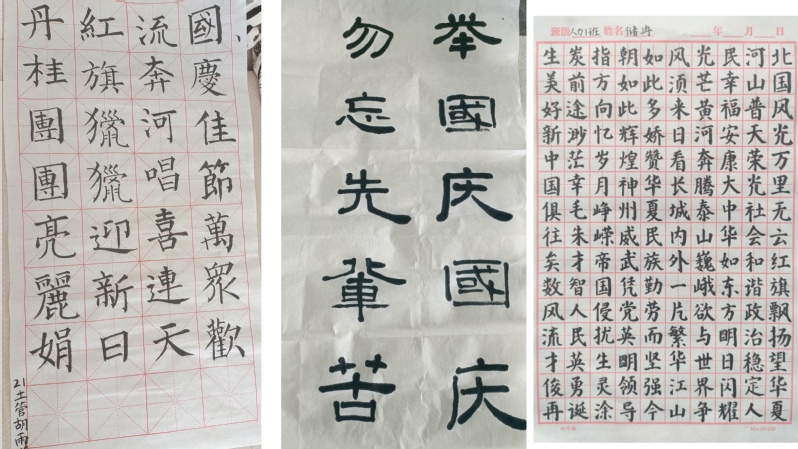 國慶佳節萬眾歡
流奔河唱喜連天
紅旗獵獵迎新日
丹桂團團亮麗娟
21土管胡雨
举國庆國庆
勿忘先輩苦
班级 人力1班 姓名 储冉 年 月 日
北国风光万里无云红旗飘扬望华夏
河山普天荣光社会和谐政治稳定人
民幸福安康大中华如东方明日闪耀
光芒黄河奔腾泰山巍峨欲与世界争
风须来日看长城内外一片繁华江山
如此多娇赞华夏民族勤劳而坚强今
朝如此辉煌神州威武凭党英明领导
指方向忆岁月峥嵘帝国侵扰生灵涂
炭前途渺茫幸毛朱才智人民英勇诞
生美好新中国俱往矣数风流才俊再